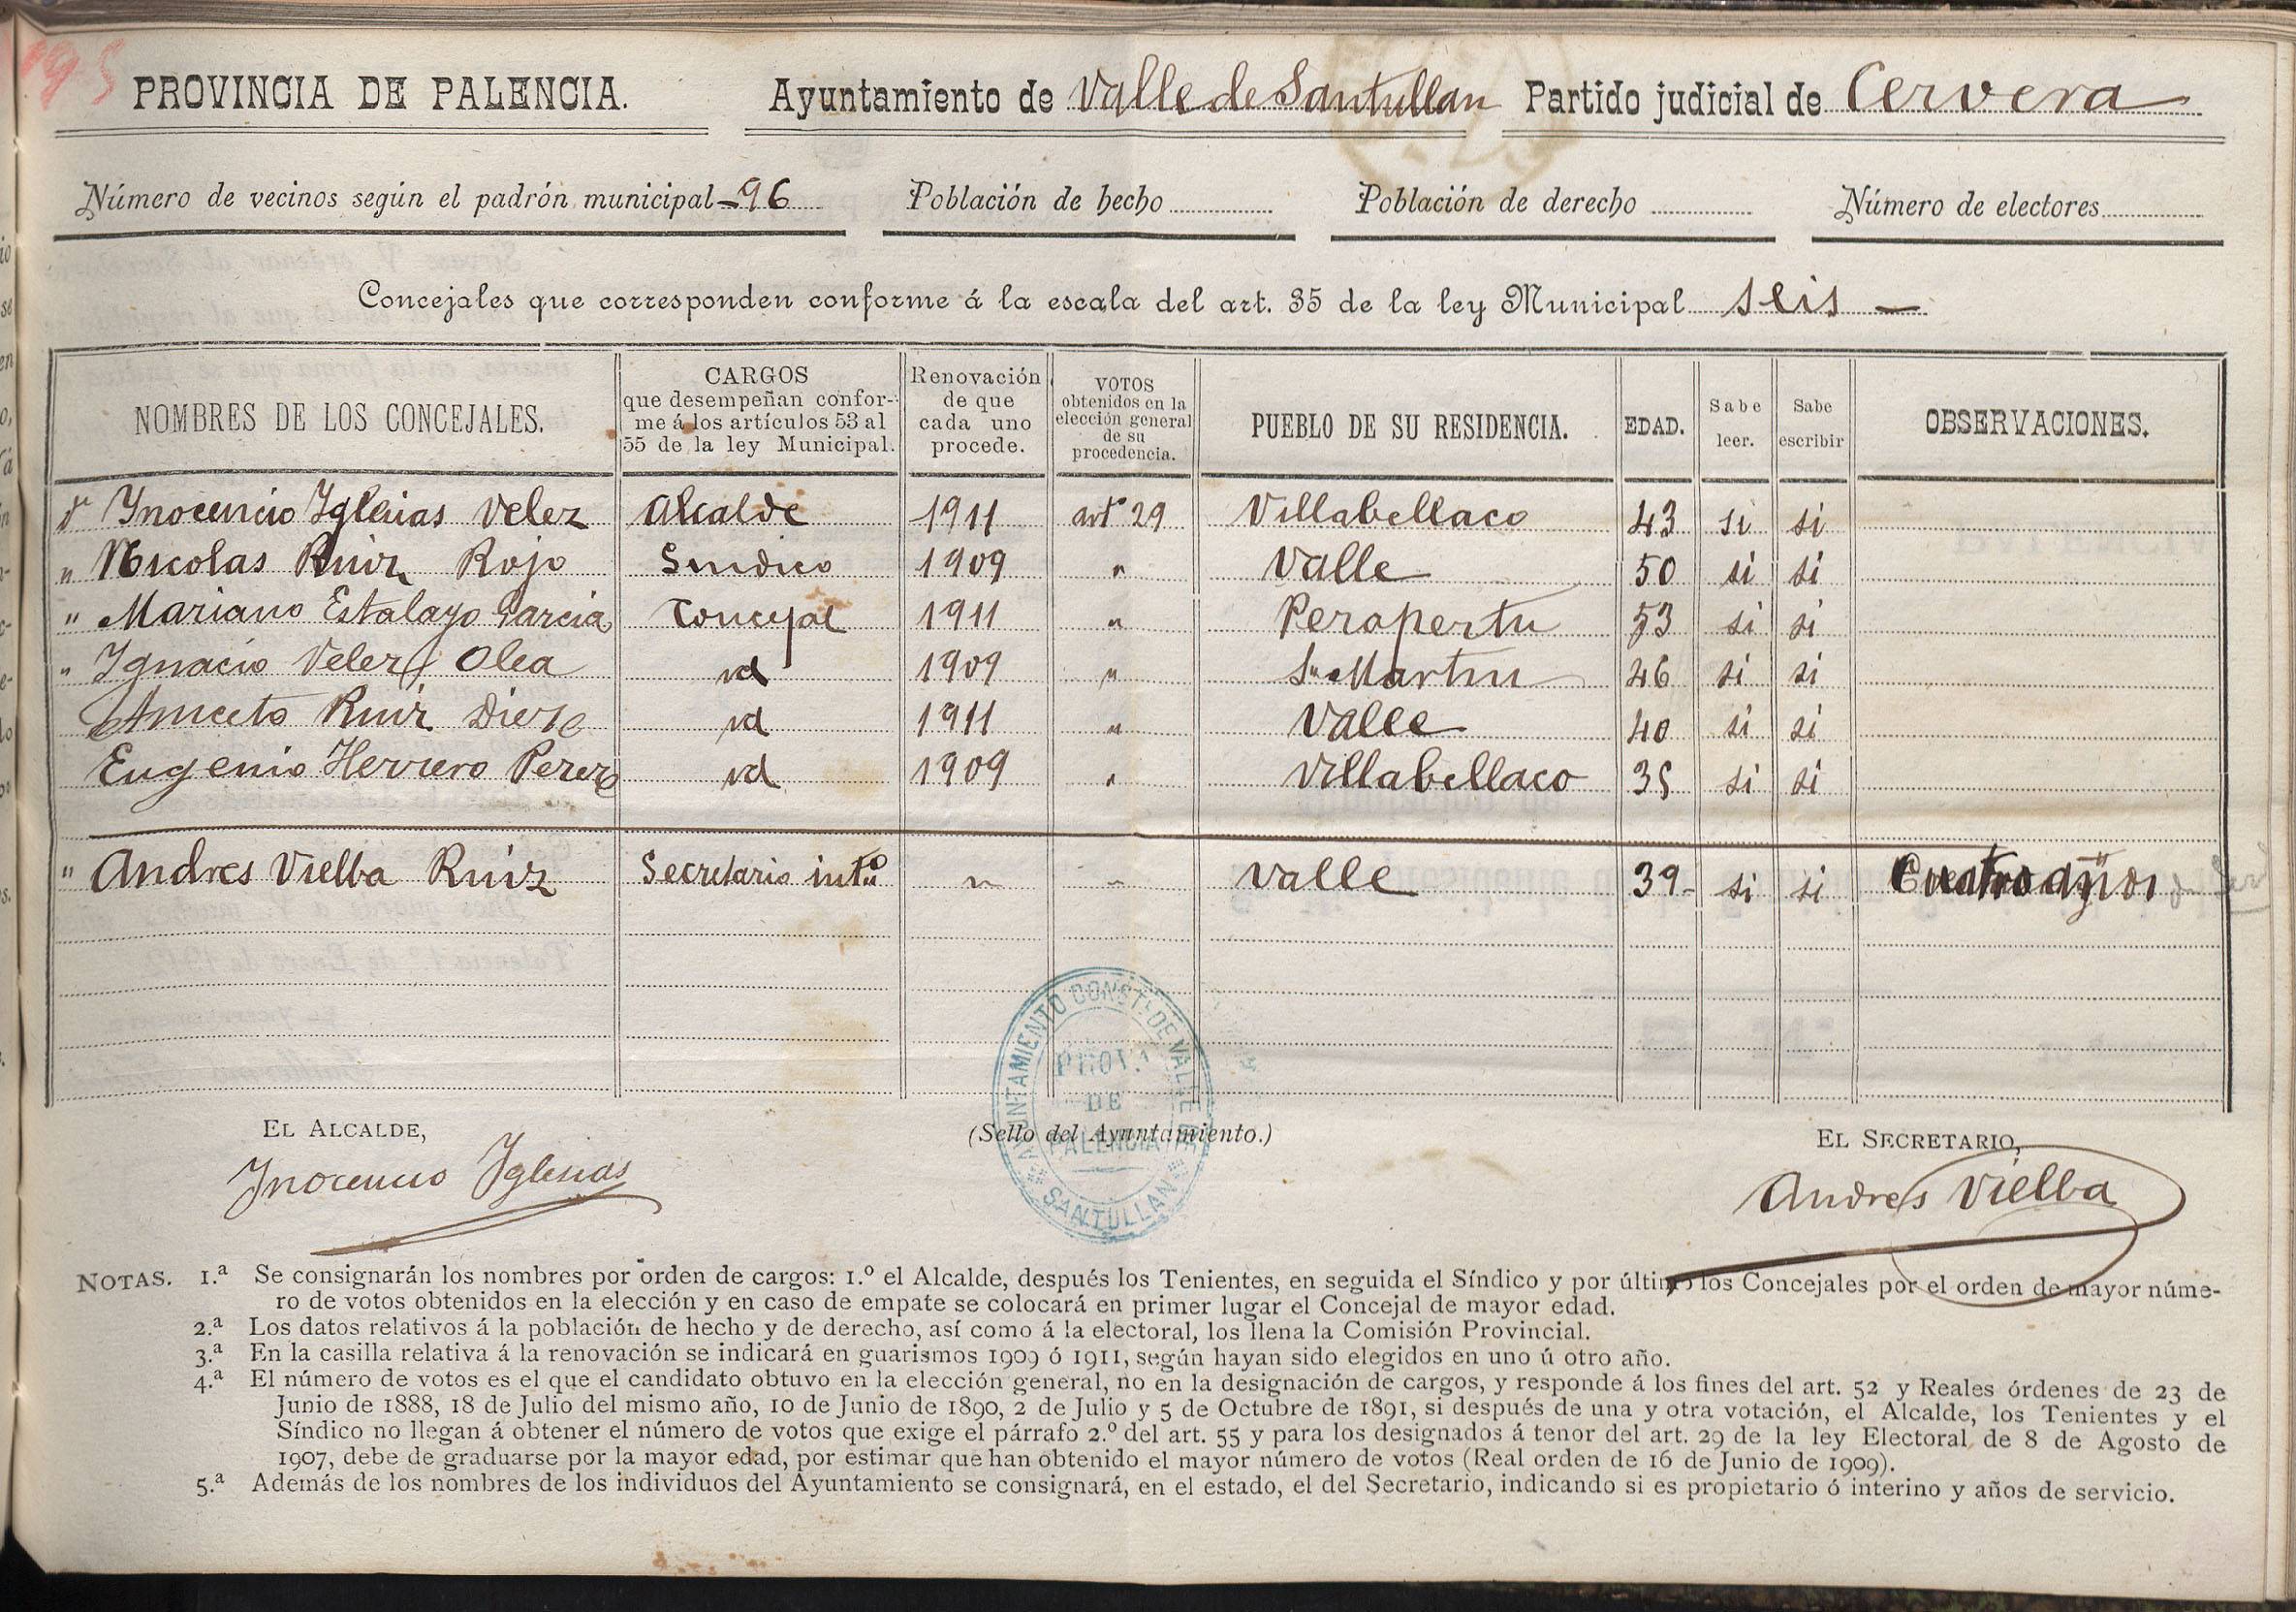 195
PROVINCIA DE PALENCIA. Ayuntamiento de Valle de Santullan Partido judicial de Cervera
Número de vecinos según el padrón municipal 96 Población de hecho Población de derecho Número de electores
Concejales que corresponden conforme á la escala del art. 35 de la ley Municipal seis
NOMBRES DE LOS CONCEJALES. CARGOS que desempeñan confor- me á los artículos 53 al 55 de la ley Municipal. Renovación de que cada uno procede. VOTOS obtenidos en la elección general de su procedencia. PUEBLO DE SU RESIDENCIA. EDAD. Sabe leer. Sabe escribir OBSERVACIONES.
Dn Ynocencio Yglesias Velez Alcalde 1911 artº 29 Villabellaco 43 si si
" Nicolas Ruiz Rojo Sindico 1909 " Valle 50 si si
" Mariano Estalayo Garcia Concejal 1911 " Perapertu 53 si si
" Ygnacio Velez Olea id 1909 " Sn Martin 46 si si
Aniceto Ruiz Diez id 1911 " Valle 40 si si
Eugenio Herrero Perez id 1909 " Villabellaco 35 si si
" Andres Vielba Ruiz Secretario intº " " Valle 39 si si Cuatro años
AYUNTAMIENTO CONST. DE VALLE DE SANTULLAN
PROV.A
DE
PALENCIA
EL ALCALDE, (Sello del Ayuntamiento.) EL SECRETARIO,
Ynocencio Yglesias Andres Vielba
NOTAS. 1.ª Se consignarán los nombres por orden de cargos: 1.º el Alcalde, después los Tenientes, en seguida el Síndico y por último los Concejales por el orden de mayor núme-
ro de votos obtenidos en la elección y en caso de empate se colocará en primer lugar el Concejal de mayor edad.
2.ª Los datos relativos á la población de hecho y de derecho, así como á la electoral, los llena la Comisión Provincial.
3.ª En la casilla relativa á la renovación se indicará en guarismos 1909 ó 1911, según hayan sido elegidos en uno ú otro año.
4.ª El número de votos es el que el candidato obtuvo en la elección general, no en la designación de cargos, y responde á los fines del art. 52 y Reales órdenes de 23 de
Junio de 1888, 18 de Julio del mismo año, 10 de Junio de 1890, 2 de Julio y 5 de Octubre de 1891, si después de una y otra votación, el Alcalde, los Tenientes y el
Síndico no llegan á obtener el número de votos que exige el párrafo 2.º del art. 55 y para los designados á tenor del art. 29 de la ley Electoral de 8 de Agosto de
1907, debe de graduarse por la mayor edad, por estimar que han obtenido el mayor número de votos (Real orden de 16 de Junio de 1909).
5.ª Además de los nombres de los individuos del Ayuntamiento se consignará, en el estado, el del Secretario, indicando si es propietario ó interino y años de servicio.